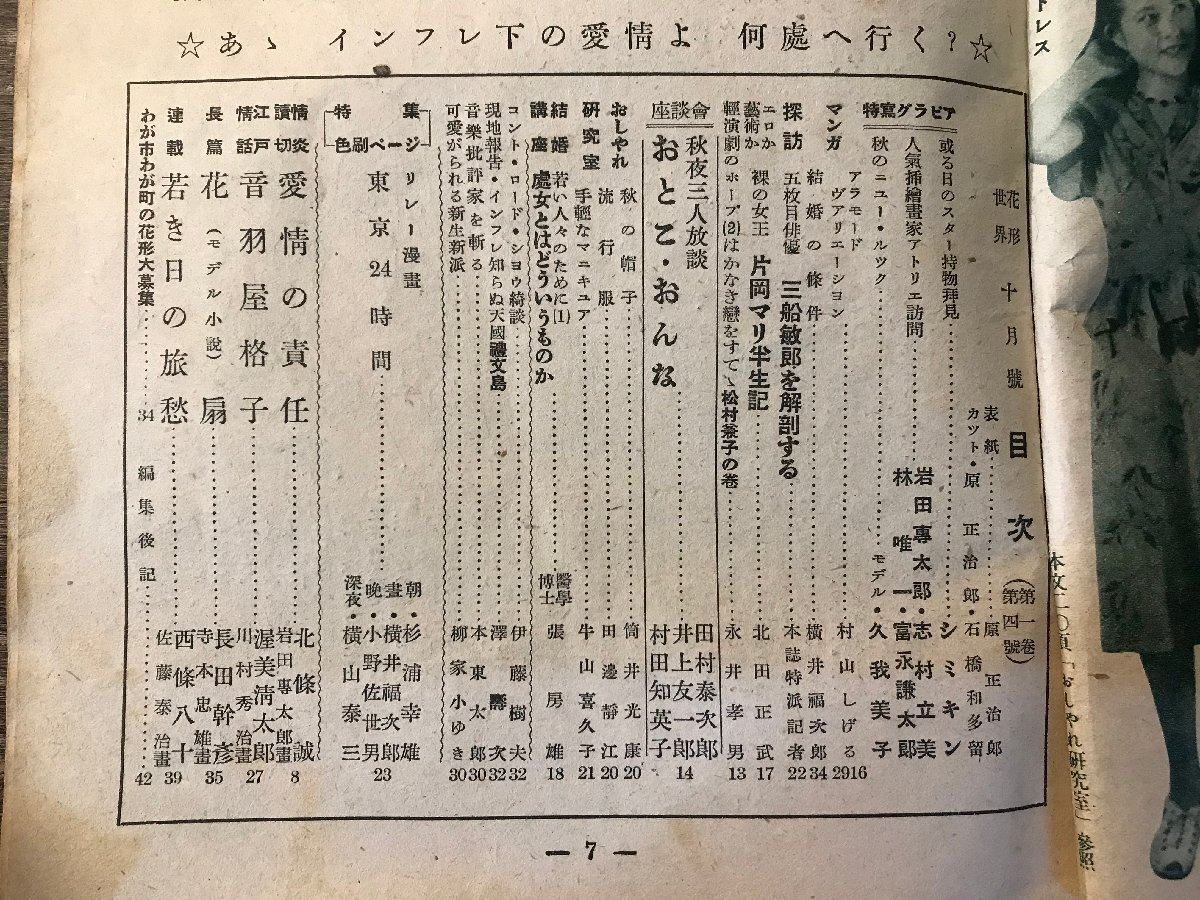 ☆あゝ インフレ下の愛情よ 何處へ行く?☆
花形世界 十月號 目次 (第一卷第四號)
表紙……原正治郎
カット・原正治郎・石橋和多留
特寫グラビア
或る日のスター持物拜見……シミキン
人氣挿繪畫家アトリエ訪問 岩田專太郎・志村立美 林唯一・富永謙太郎
秋のニュー・ルック……モデル・久我美子
マンガ
アラモード ヴァリエーション……村山しげる 2916
結婚の條件……横井福次郎 34
探訪 五枚目俳優 三船敏郎を解剖する……本誌特派記者 22
エロか藝術か 裸の女王 片岡マリ半生記……北田正武 17
輕演劇のホープ(2)はかなき戀をすてゝ松村兼子の卷……永井孝男 13
座談會 秋夜三人放談 おとこ・おんな……田村泰次郎 井上友一郎 村田知英子 14
おしやれ研究室
秋の帽子……筒井光康 20
流行服……田邊靜江 20
手輕なマニキュア……牛山喜久子 21
結婚講座 若い人々のために(1) 處女とはどういうものか……醫學博士 張房雄 18
コント・ロード・ショウ綺談……伊藤樹夫 32
現地報告・インフレ知らぬ天國禮文島……澤壽次 32
音樂批評家を斬る……本東太郎 30
可愛がられる新生新派……柳家小ゆき 30
特集色刷ページ
リレー漫畫 東京24時間……朝・杉浦幸雄 晝・横井福次郎 晩・小野佐世男 深夜・横山泰三 23
情炎讀切 愛情の責任……北條誠 岩田專太郎畫 8
江戸情話 音羽屋格子……渥美清太郎 川村秀治畫 27
長篇 花扇 (モデル小説)……長田幹彦 寺本忠雄畫 35
連載 若き日の旅愁……西條八十 佐藤泰治畫 39
わが市わが町の花形大募集……34
編集後記……42
— 7 —
トレス
本文二〇頁「おしやれ研究室」參照